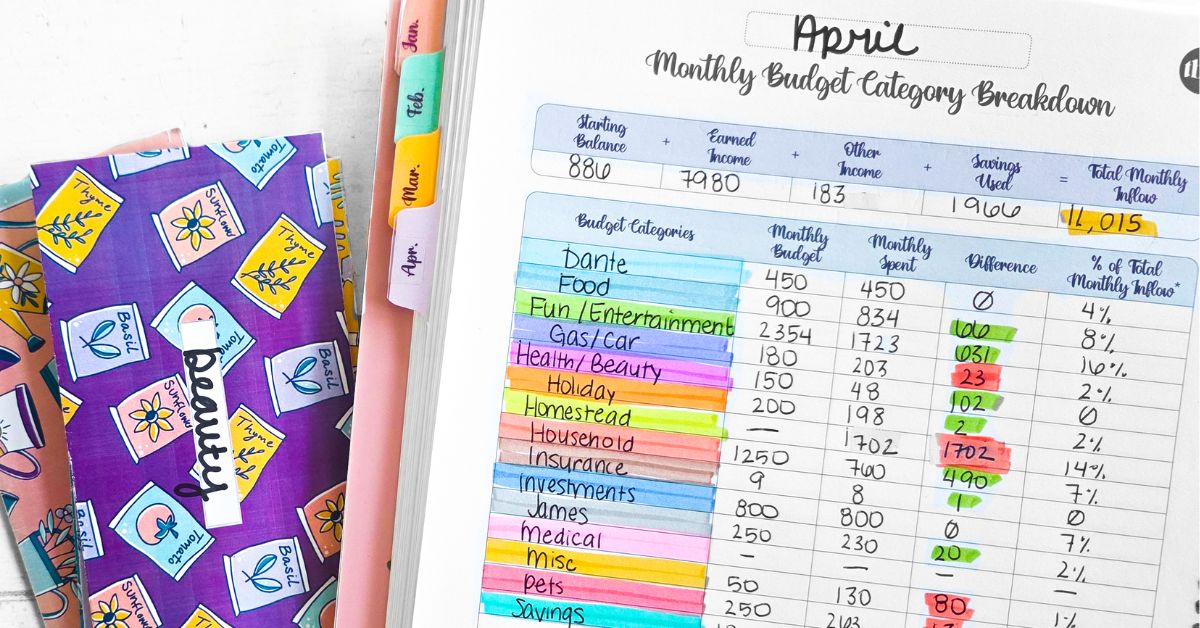 Jan.
Feb.
Mar.
Apr.
Thyme
Sunflower
Tomato
Thyme
Basil
Basil
Sunflower
Thyme
Tomato
Basil
Basil
Sunflower
Thyme
beauty
April
Monthly Budget Category Breakdown
11
Starting Balance + Earned Income + Other Income + Savings Used = Total Monthly Inflow
886 7980 183 1966 11,015
Budget Categories Monthly Budget Monthly Spent Difference % of Total Monthly Inflow*
Dante 450 450 Ø 4%
Food 900 834 66 8%
Fun/Entertainment 2354 1723 631 16%
Gas/Car 180 203 23 2%
Health/Beauty 150 48 102 Ø
Holiday 200 198 2 2%
Homestead — 1702 1702 14%
Household 1250 760 490 7%
Insurance 9 8 1 Ø
Investments 800 800 Ø 7%
James 250 230 20 2%
Medical — — — —
Misc 50 130 80 1%
Pets 250
Savings